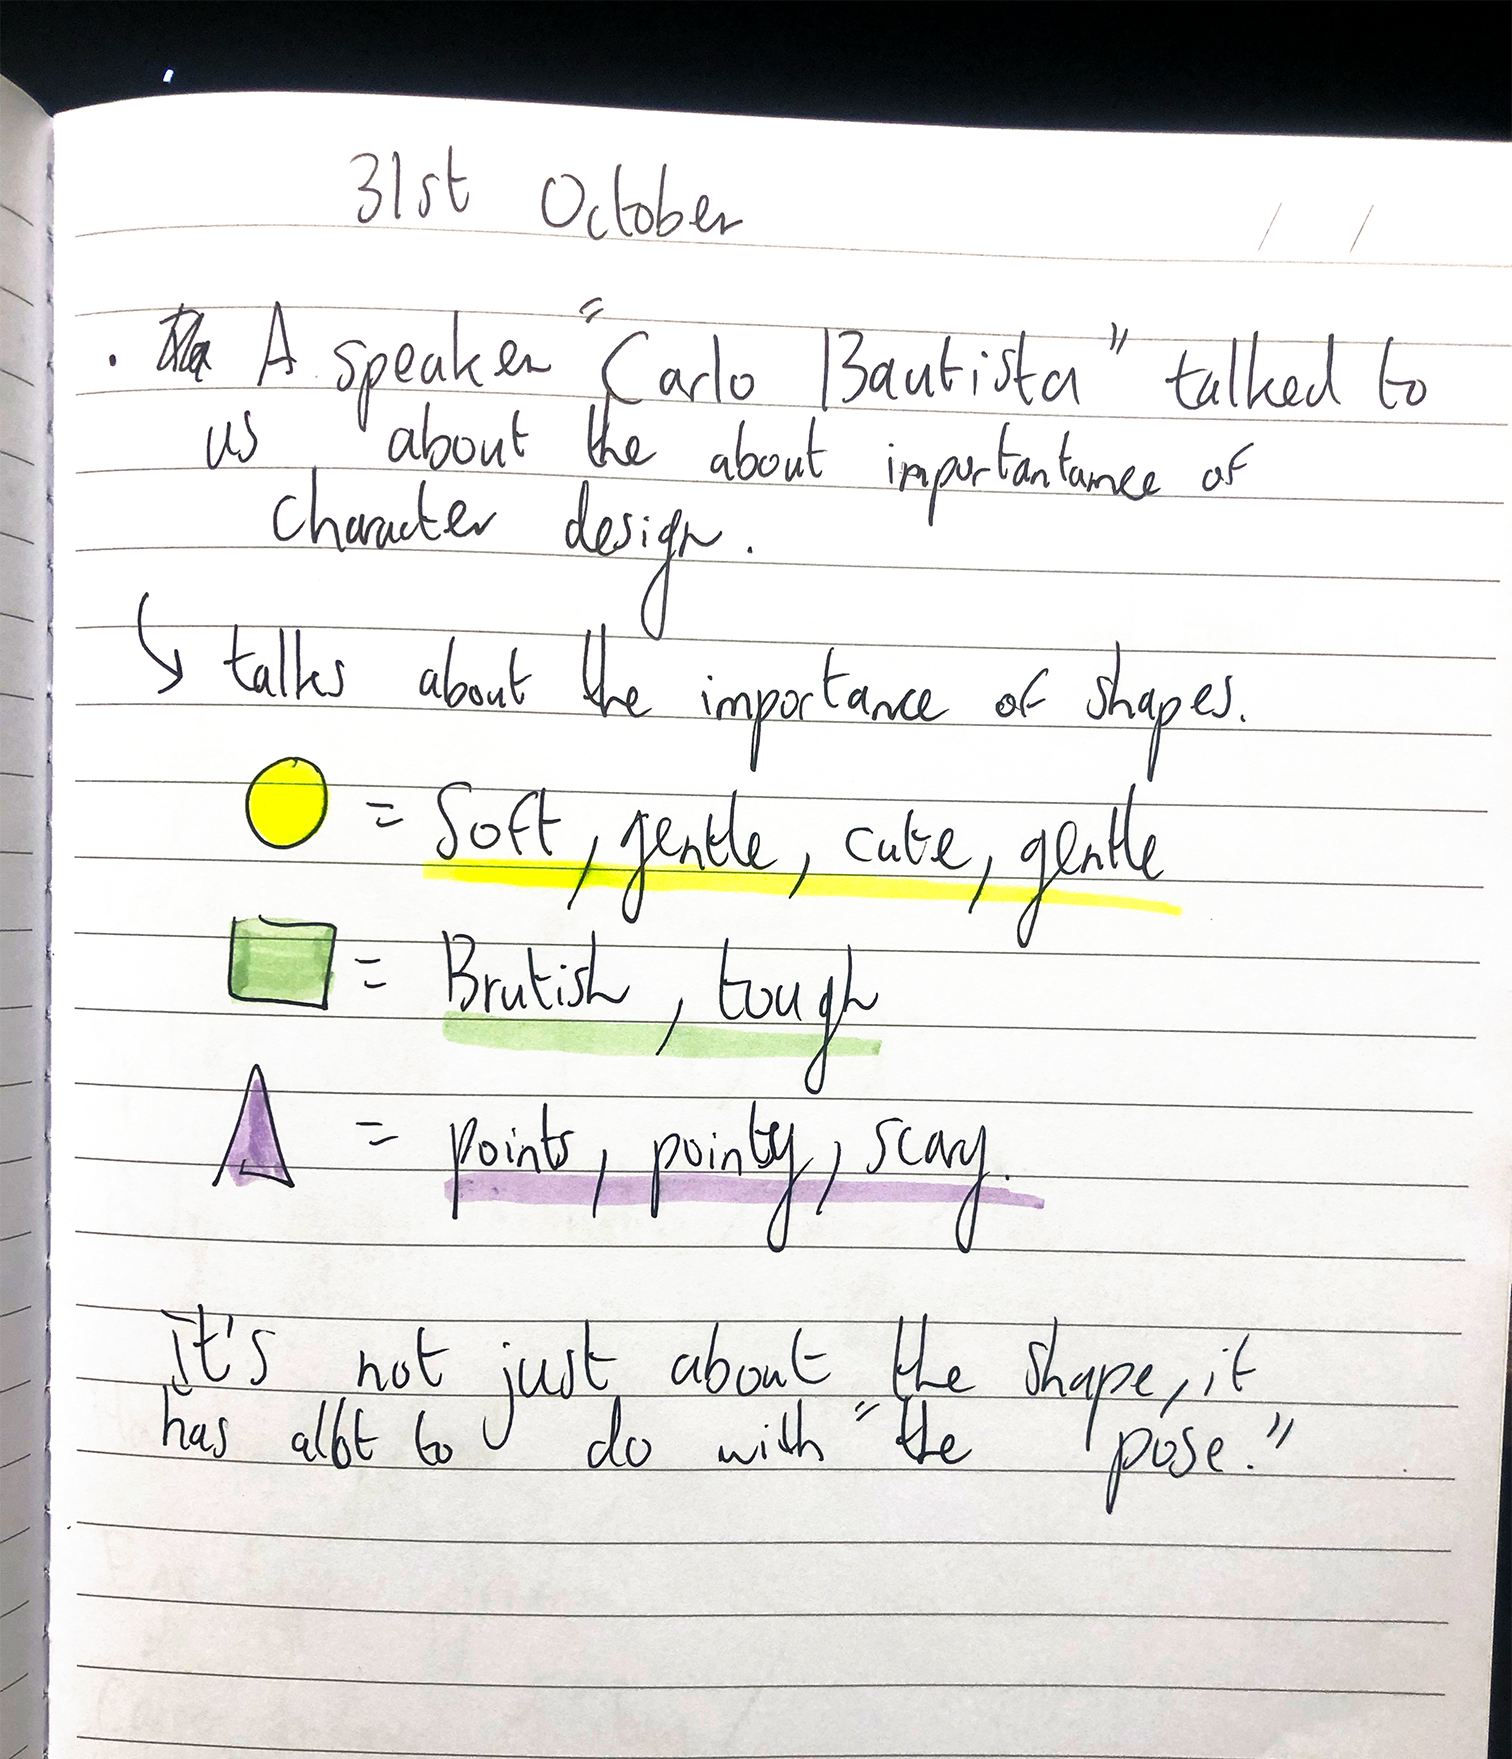 31st October
. A speaker "Carlo Bautista" talked to
us about the about importantance of
character design.
↳ talks about the importance of shapes.
= Soft, gentle, cute, gentle
= Brutish, tough
= points, pointy, scary.
it's not just about the shape, it
has alot to do with "the pose."